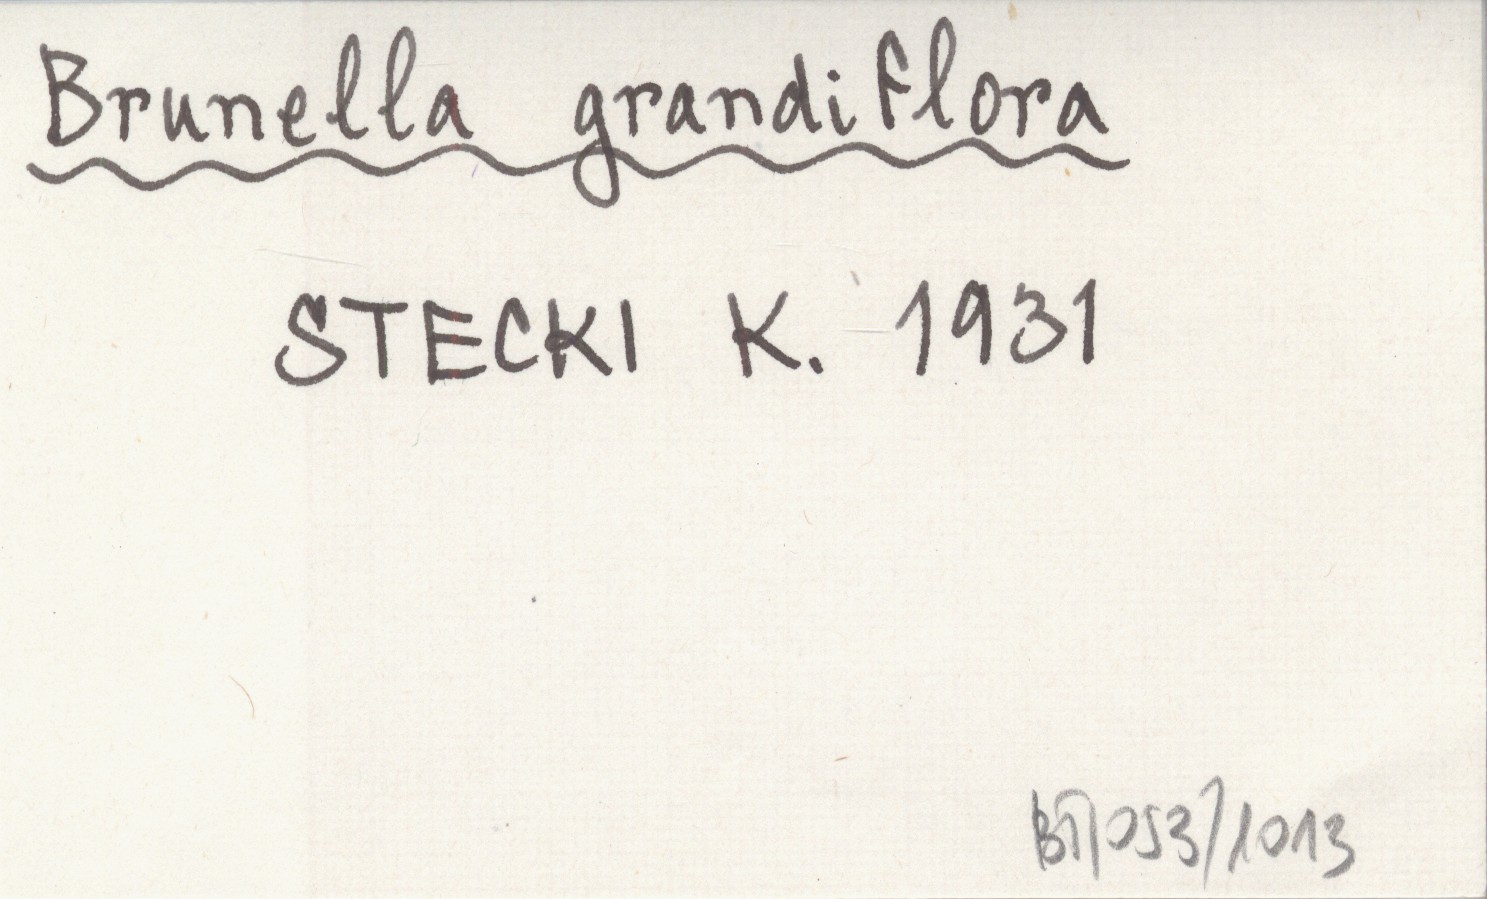 Brunella grandiflora
STECKI K. 1931
BT/053/1013